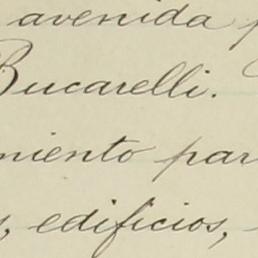 avenida p
Bucarelli.
miento par
s, edificios,